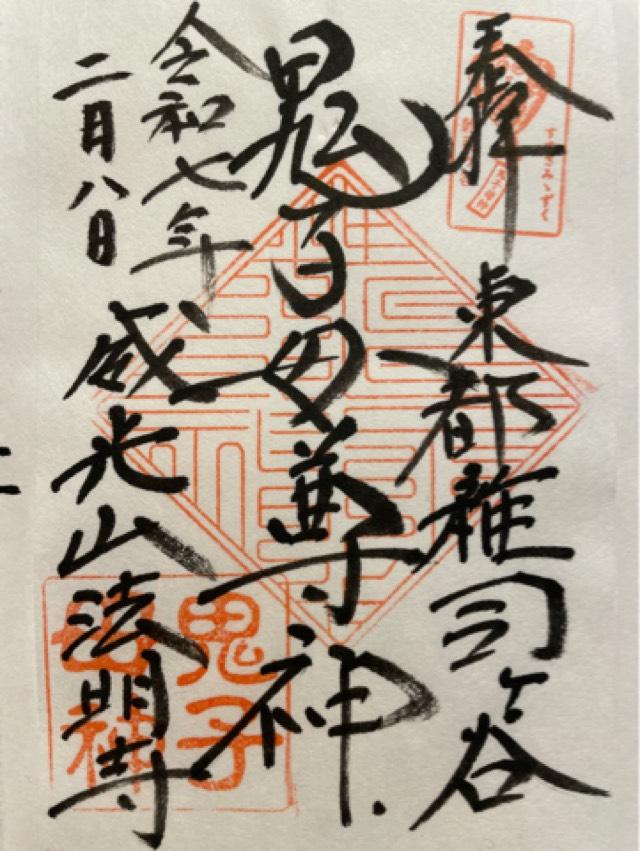 奉拝
東都雑司ヶ谷
すゝきみゝずく
鬼子母尊神
令和七年
二月八日
威光山法明寺
鬼子
母神